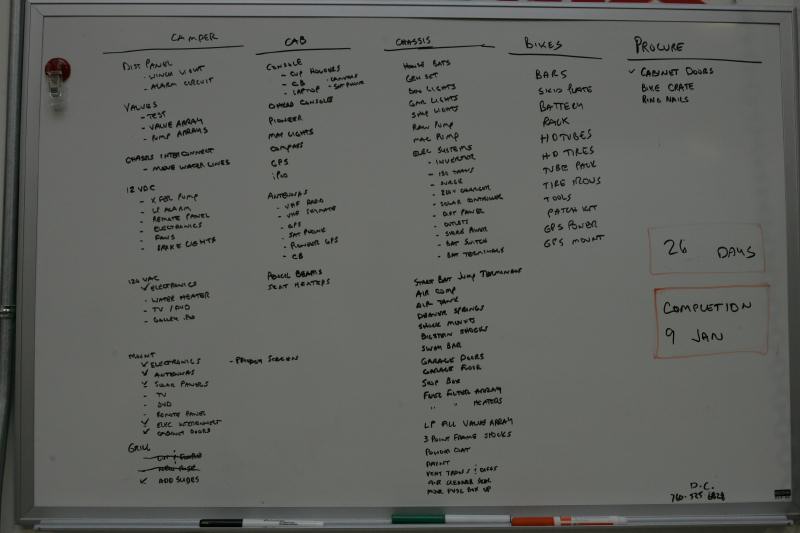 CAMPER
DIST PANEL
- WINCH LIGHT
- ALARM CIRCUIT
VALVES
- TEST
- VALVE ARRAY
- PUMP ARRAYS
CHASSIS INTERCONNECT
- MOVE WATER LINES
12 VDC
- XFER PUMP
- LP ALARM
- REMOTE PANEL
- ELECTRONICS
- FANS
- BRAKE LIGHTS
120 VAC
✓ ELECTRONICS
- WATER HEATER
- TV / DVD
- GALLEY
MOUNT
✓ ELECTRONICS
✓ ANTENNAS
✓ SOLAR PANELS
- TV
- DVD
- REMOTE PANEL
✓ ELEC INTERCONNECT
✓ CABINET DOORS
GRILL
✓ ADD SLIDES
CAB
CONSOLE
- CUP HOLDERS
- CB - CAMERAS
- LAPTOP - SAT PHONE
OHEAD CONSOLE
PIONEER
MAP LIGHTS
COMPASS
GPS
iPOD
ANTENNAS
- VHF RADIO
- GPS
- SAT PHONE
- PIONEER GPS
- CB
SEAT HEATERS
- PRIVACY SCREEN
CHASSIS
HOUSE BATS
GEN SET
LIGHTS
LIGHTS
LIGHTS
RAW PUMP
MAC PUMP
ELEC SYSTEMS
- INVERTER
- SURGE
- CHARGER
- SOLAR CONTROLLER
- DIST PANEL
- OUTLETS
- SHORE POWER
- BAT SWITCH
- BAT TERMINALS
START BAT JUMP TERMINALS
AIR COMP
AIR TANK
DEAVER SPRINGS
SHOCK MOUNTS
BILSTEIN SHOCKS
SWAY BAR
GARAGE DOORS
GARAGE FLOOR
STEP BOX
FUEL FILTER ARRAY
" " HEATERS
LP FILL VALVE ARRAY
3 POINT FRAME SHOCKS
POWDER COAT
PAINT
VENT TRANS & DIFFS
AIR CLEANER SEAL
BIKES
BARS
SKID PLATE
BATTERY
RACK
HD TUBES
HD TIRES
TUBE PACK
TIRE IRONS
TOOLS
PATCH KIT
GPS POWER
GPS MOUNT
PROCURE
✓ CABINET DOORS
BIKE CRATE
RING NAILS
26 DAYS
COMPLETION
9 JAN
D.C.